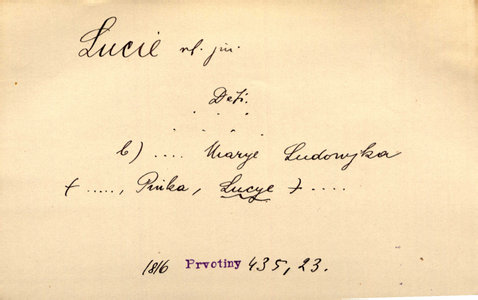 Lucie vl. jm.
Deti.
. . .
. . . .
b) .... Marye Ludowjka
( ....., Pinka, Lucye ) ....
1816 Prvotiny 435, 23.